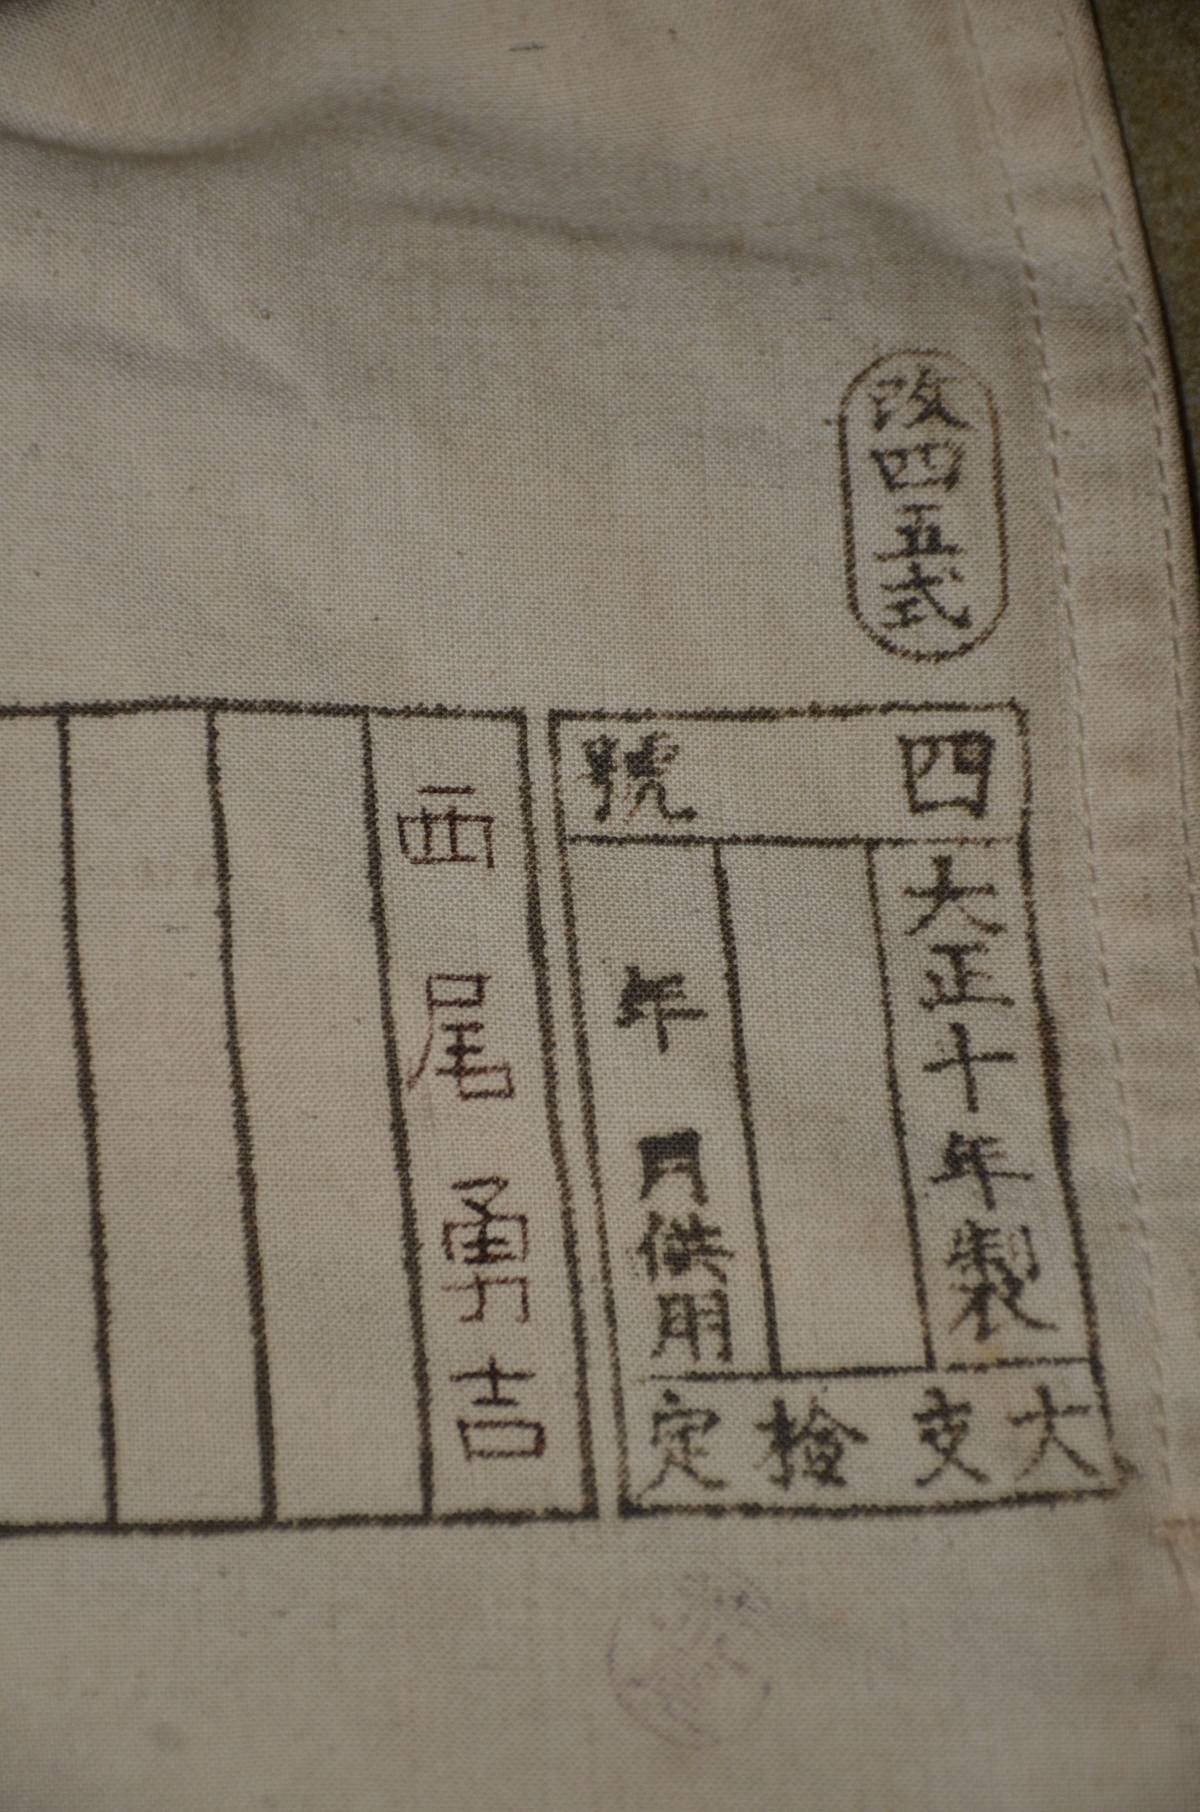 改四五式
四號
大正十年製
年月供用
大支検定
西尾勇吉